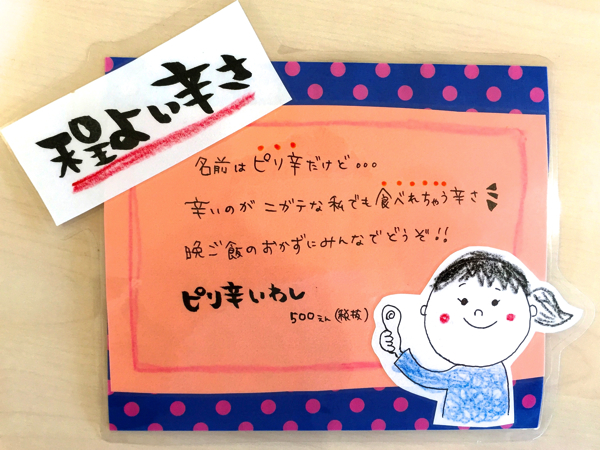 程よい辛さ
名前はピリ辛だけど。。。
辛いのがニガテな私でも食べれちゃう辛さ
晩ご飯のおかずにみんなでどうぞ!!
ピリ辛いわし
500えん(税抜)